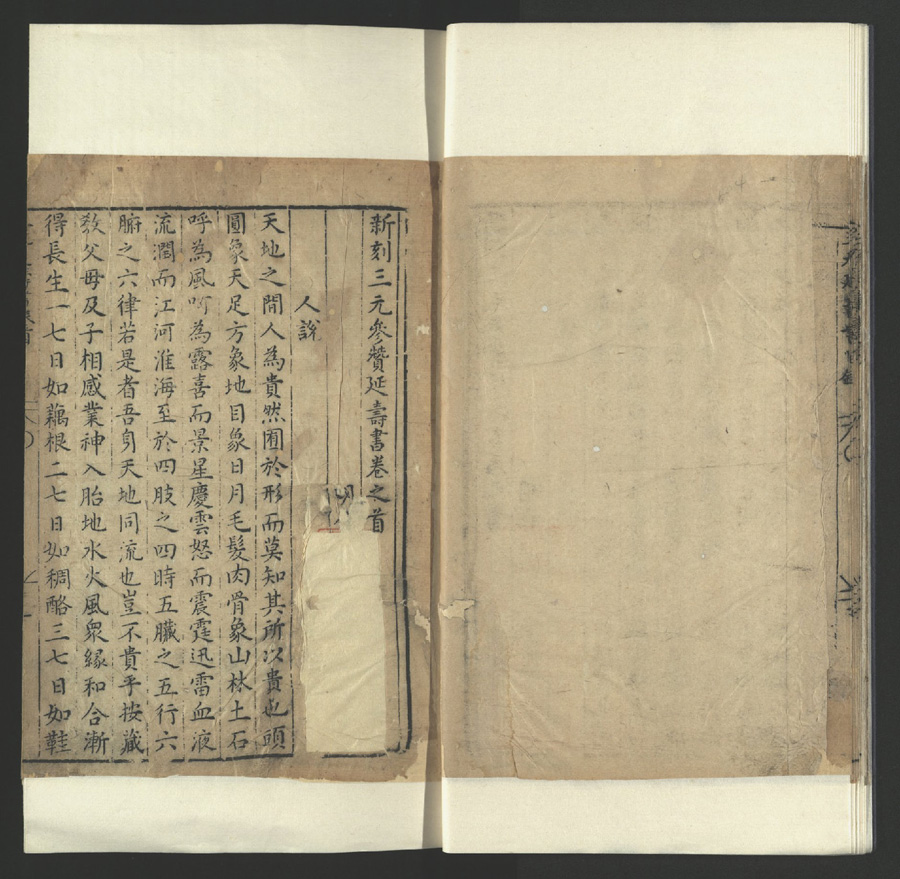 新刻三元參贊延壽書卷之首
人說
天地之間人為貴然囿於形而莫知其所以貴也頭
圓象天足方象地目象日月毛髮肉骨象山林土石
呼為風呵為露喜而景星慶雲怒而震霆迅雷血液
流潤而江河淮海至於四肢之四時五臟之五行六
腑之六律若是者吾身天地同流也豈不貴乎按藏
教父母及子相感業神入胎地水火風眾緣和合漸
得長生一七日如藕根二七日如稠酪三七日如鞋